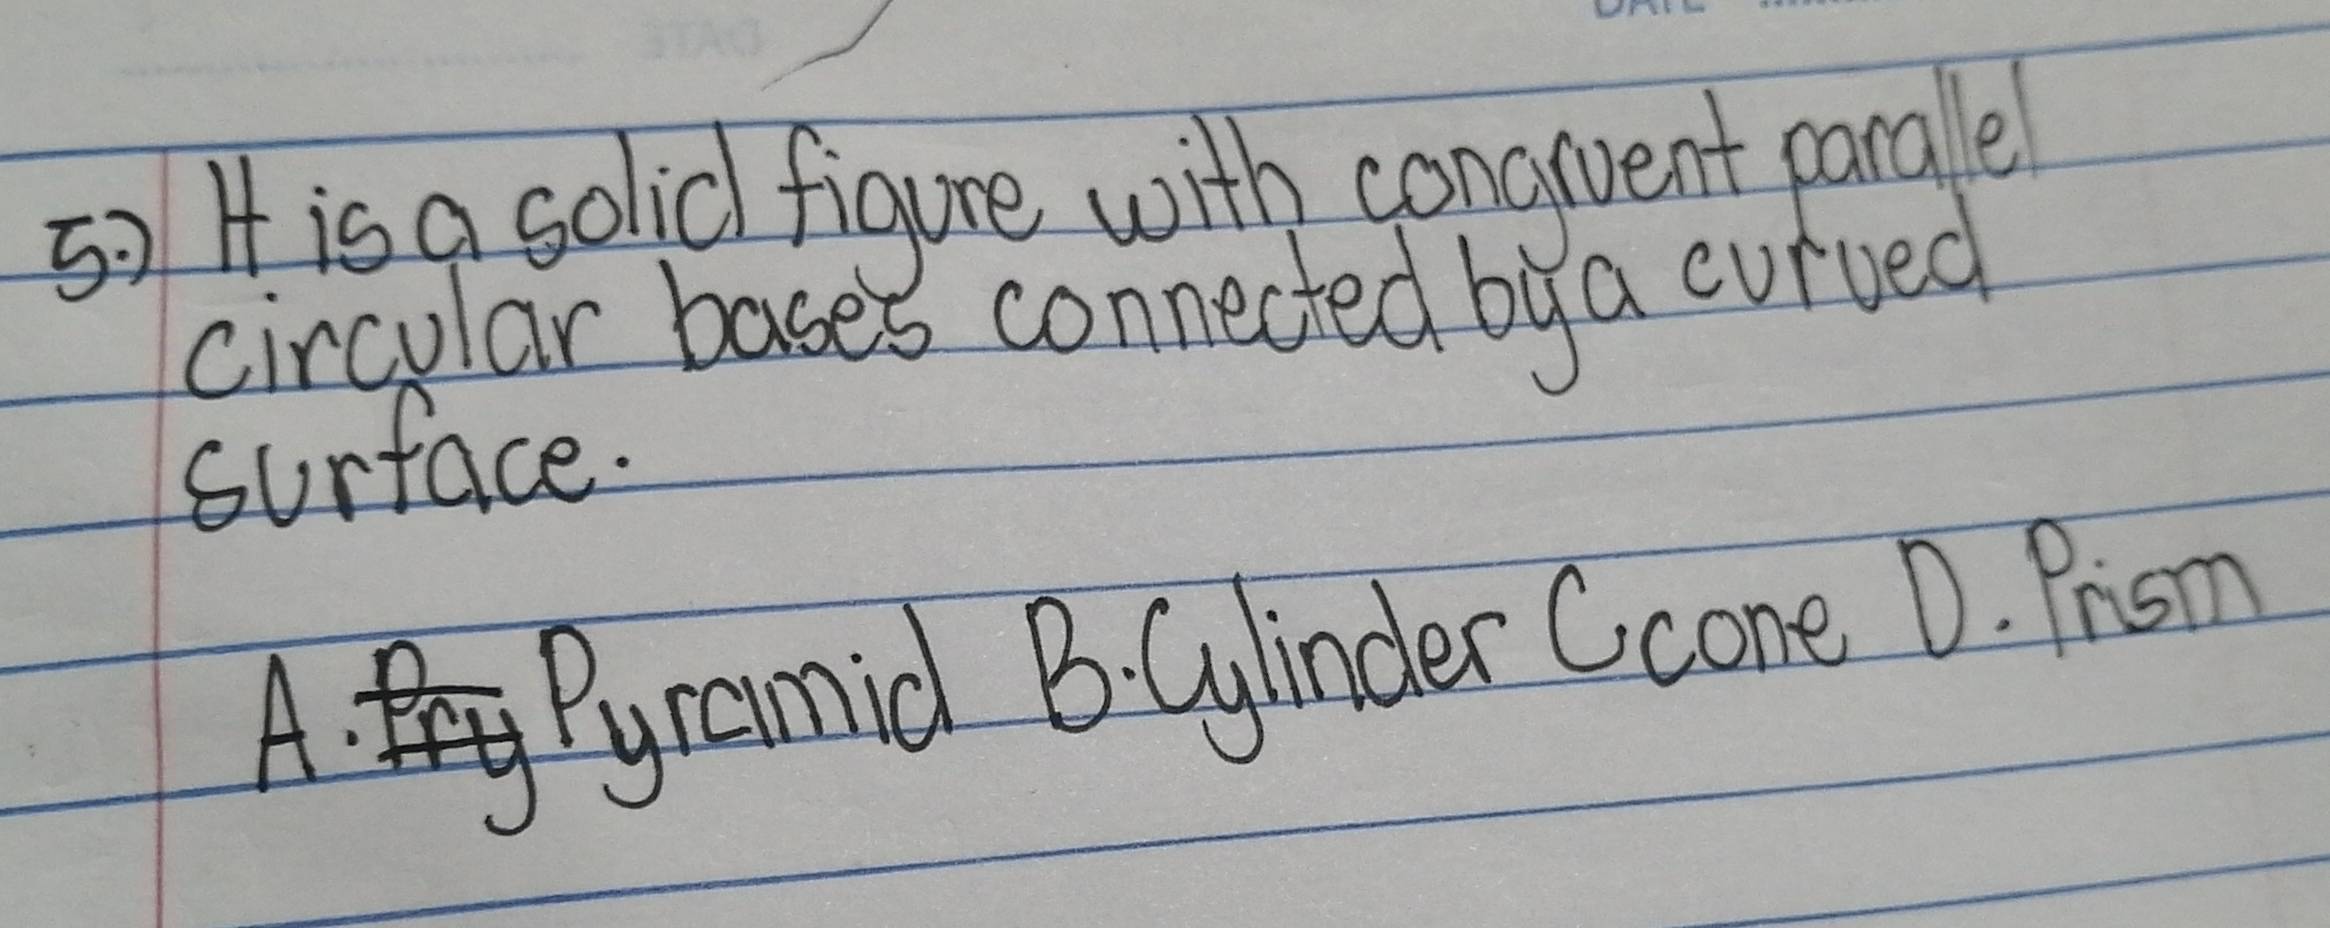 DATE
5.) It is a solid figure with congruent parallel
circular bases connected by a curved
surface.
A. Pry Pyramid B. Cylinder C. cone D. Prism